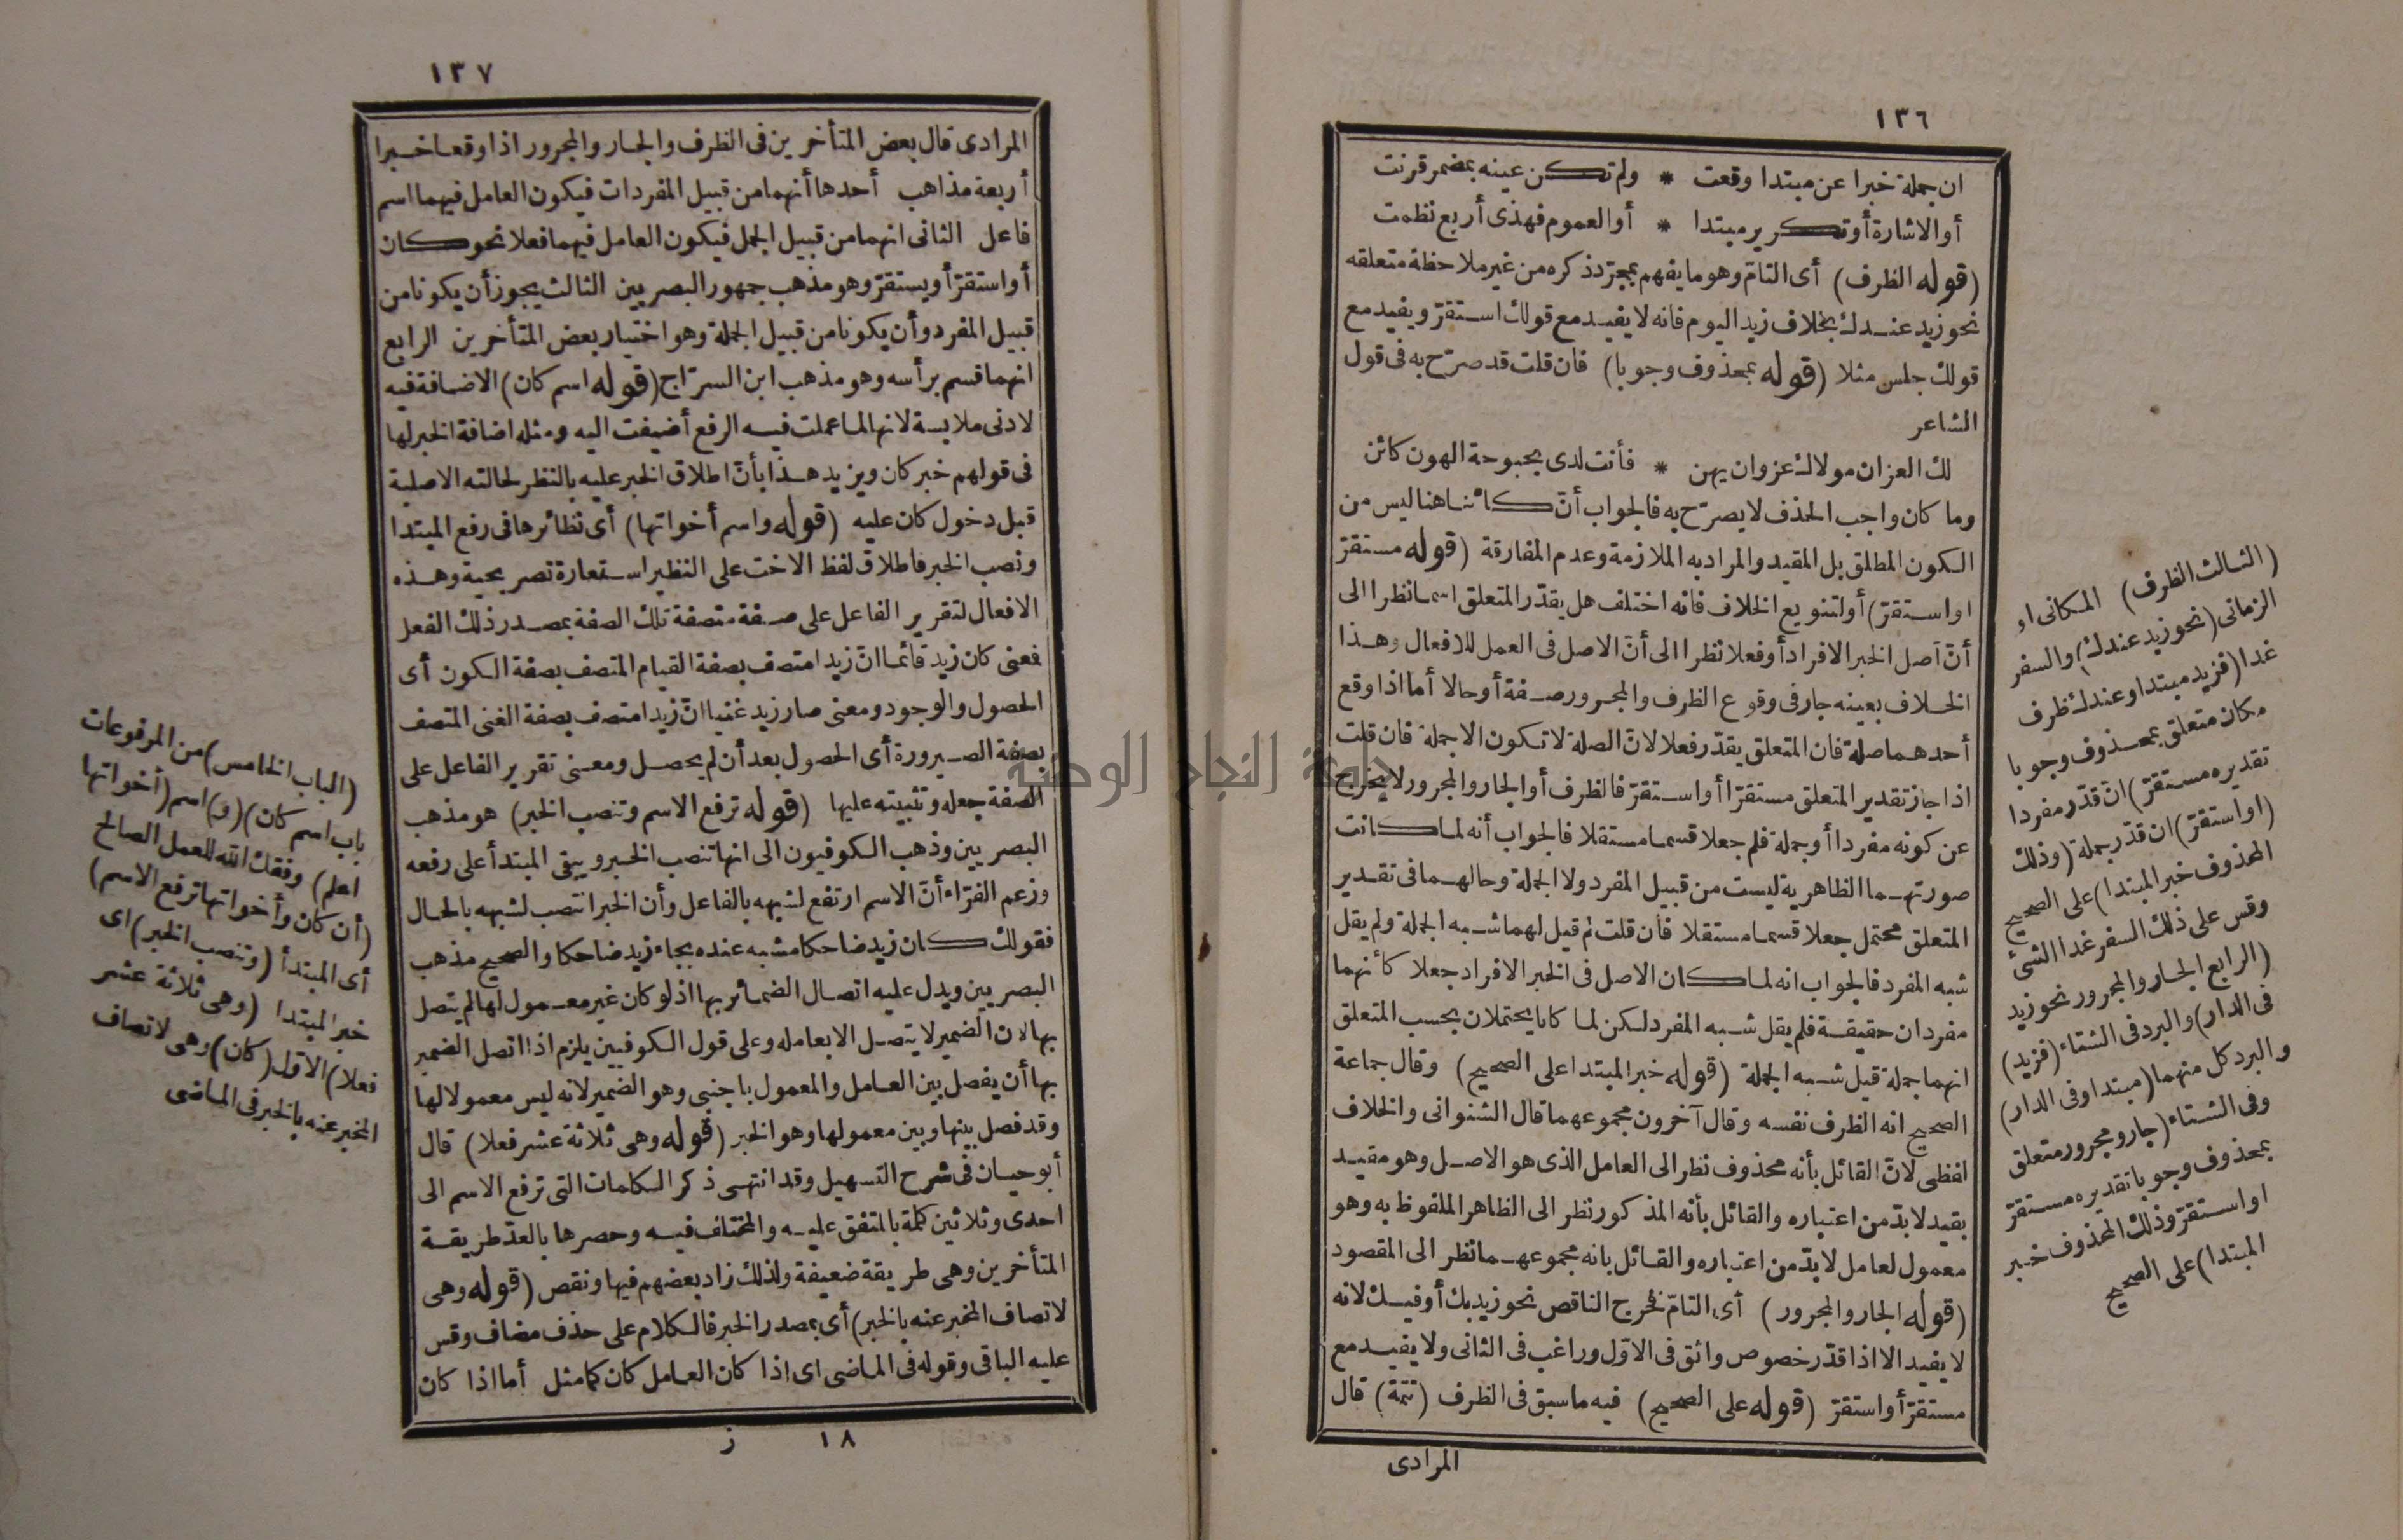 ١٣٦
ان جملة خبرا عن مبتدا وقعت * ولم تكن عينه بمضمر قرنت
أو الاشارة أو تكرير مبتدا * أو العموم فهذى أربع نظمت
(قوله الظرف) أى التامّ وهو ما يفهم بمجرّد ذكره من غير ملاحظة متعلقه
نحو زيد عندك بخلاف زيد اليوم فانه لا يفيد مع قولك استقرّ ويفيد مع
قولك جلس مثلا (قوله بمحذوف وجوبا) فان قلت قد صرّح به فى قول
الشاعر
لك العزان مولاك عز وان يهن * فأنت لدى بحبوحة الهون كائن
وما كان واجب الحذف لا يصرّح به فالجواب أنّ كائنا هنا ليس من
الكون المطلق بل المقيد والمراد به الملازمة وعدم المفارقة (قوله مستقرّ
او استقرّ) أو لتنويع الخلاف فانه اختلف هل يقدّر المتعلق اسما نظرا الى
أنّ أصل الخبر الافراد أو فعلا نظرا الى أنّ الاصل فى العمل للافعال وهذا
الخلاف بعينه جار فى وقوع الظرف والمجرور صفة أو حالا أما اذا وقع
أحدهما صلة فان المتعلق يقدّر فعلا لانّ الصلة لا تكون الا جملة فان قلت
اذا جاز تقدير المتعلق مستقرّا أو استقرّ فالظرف أو الجار والمجرور لا يخرج
عن كونه مفردا أو جملة فلم جعلا قسما مستقلا فالجواب أنه لما كانت
صورتهما الظاهرية ليست من قبيل المفرد ولا الجملة وحالهما فى تقدير
المتعلق محتمل جعلا قسما مستقلا فان قلت لم قيل لهما شبه الجملة ولم يقل
شبه المفرد فالجواب انه لما كان الاصل فى الخبر الافراد جعلا كأنهما
مفردان حقيقة فلم يقل شبه المفرد لكن لما كانا يحتملان بحسب المتعلق
انهما جملة قيل شبه الجملة (قوله خبر المبتدا على الصحيح) وقال جماعة
الصحيح انه الظرف نفسه وقال آخرون مجموعهما قال الشنوانى والخلاف
لفظى لانّ القائل بأنه محذوف نظر الى العامل الذى هو الاصل وهو مقيد
بقيد لابدّ من اعتباره والقائل بأنه المذكور نظر الى الظاهر الملفوظ به وهو
معمول لعامل لابدّ من اعتباره والقائل بانه مجموعهما نظر الى المقصود
(قوله الجار والمجرور) أى التامّ فخرج الناقص نحو زيد بك أو فيك لانه
لا يفيد الا اذا قدّر خصوص واثق فى الاوّل وراغب فى الثانى ولا يفيد مع
مستقرّ أو استقرّ (قوله على الصحيح) فيه ما سبق فى الظرف (تتمة) قال
المرادى
(الثالث الظرف) المكانى او
الزمانى (نحو زيد عندك) والسفر
غدا (فزيد مبتدا وعندك ظرف
مكان متعلق بمحذوف وجوبا
تقديره مستقرّ) ان قدّر مفردا
(او استقرّ) ان قدّر جملة (وذلك
المحذوف خبر المبتدا) على الصحيح
وقس على ذلك السفر غدا الشئ
(الرابع الجار والمجرور نحو زيد
فى الدار) والبرد فى الشتاء (فزيد)
والبرد كل منهما (مبتدا وفى الدار)
وفى الشتاء (جار ومجرور متعلق
بمحذوف وجوبا تقديره مستقرّ
او استقرّ وذلك المحذوف خبر
المبتدا) على الصحيح
١٣٧
المرادى قال بعض المتأخرين فى الظرف والجار والمجرور اذا وقعا خبرا
أربعة مذاهب أحدها أنهما من قبيل المفردات فيكون العامل فيهما اسم
فاعل الثانى انهما من قبيل الجمل فيكون العامل فيهما فعلا نحو كان
أو استقرّ أو يستقرّ وهو مذهب جمهور البصريين الثالث يجوز أن يكونا من
قبيل المفرد وأن يكونا من قبيل الجملة وهو اختيار بعض المتأخرين الرابع
انهما قسم برأسه وهو مذهب ابن السرّاج (قوله اسم كان) الاضافة فيه
لادنى ملابسة لانها لما عملت فيه الرفع أضيفت اليه ومثله اضافة الخبر لها
فى قولهم خبر كان ويزيد هذا بأنّ اطلاق الخبر عليه بالنظر لحالته الاصلية
قبل دخول كان عليه (قوله واسم أخواتها) أى نظائرها فى رفع المبتدا
ونصب الخبر فاطلاق لفظ الاخت على النظير استعارة تصريحية وهذه
الافعال لتقرير الفاعل على صفة متصفة تلك الصفة بمصدر ذلك الفعل
فمعنى كان زيد قائما انّ زيدا متصف بصفة القيام المتصف بصفة الكون أى
الحصول والوجود ومعنى صار زيد غنيا انّ زيدا متصف بصفة الغنى المتصف
بصفة الصيرورة أى الحصول بعد أن لم يحصل ومعنى تقرير الفاعل على
الصفة جعله وتثبيته عليها (قوله ترفع الاسم وتنصب الخبر) هو مذهب
البصريين وذهب الكوفيون الى انها تنصب الخبر ويبقى المبتدأ على رفعه
وزعم الفرّاء أنّ الاسم ارتفع لشبهه بالفاعل وأن الخبر انتصب لشبهه بالحال
فقولك كان زيد ضاحكا مشبه عنده بجاء زيد ضاحكا والصحيح مذهب
البصريين ويدل عليه اتصال الضمائر بها اذ لو كان غير معمول لها لم يتصل
بها لان الضمير لا يتصل الا بعامله وعلى قول الكوفيين يلزم اذا اتصل الضمير
بها أن يفصل بين العامل والمعمول باجنبى وهو الضمير لانه ليس معمولا لها
وقد فصل بينها وبين معمولها وهو الخبر (قوله وهى ثلاثة عشر فعلا) قال
أبو حيان فى شرح التسهيل وقد انتهى ذكر الكلمات التى ترفع الاسم الى
احدى وثلاثين كلمة بالمتفق عليه والمختلف فيه وحصرها بالعدّ طريقة
المتأخرين وهى طريقة ضعيفة ولذلك زاد بعضهم فيها ونقص (قوله وهى
لاتصاف المخبر عنه بالخبر) أى بمصدر الخبر فالكلام على حذف مضاف وقس
عليه الباقى وقوله فى الماضى اى اذا كان العامل كان كما مثل أما اذا كان
١٨ ز
(الباب الخامس) من المرفوعات
باب اسم كان) (و) اسم (أخواتها
اعلم) وفقك الله للعمل الصالح
(أن كان وأخواتها ترفع الاسم)
أى المبتدأ (وتنصب الخبر) اى
خبر المبتدا (وهى ثلاثة عشر
فعلا) الاوّل (كان) وهى لاتصاف
المخبر عنه بالخبر فى الماضى
جامعة النجاح الوطنية